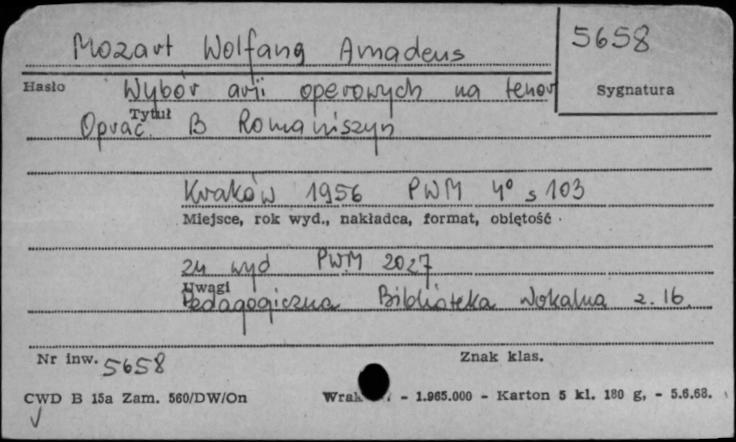 Mozart Wolfang Amadeus 5658
Hasło Wybór arii operowych na tenor Sygnatura
Tytuł
Oprac. B Romaniszyn
Kraków 1956 PWM 4° s 103
Miejsce, rok wyd., nakładca, format, obiętość
zn wyd PWM 2027
Uwagi
Pedagogiczna Biblioteka Wokalna z. 16.
Nr inw. 5658 Znak klas.
CWD B 15a Zam. 560/DW/On - 1.965.000 - Karton 5 kl. 180 g, - 5.6.68.